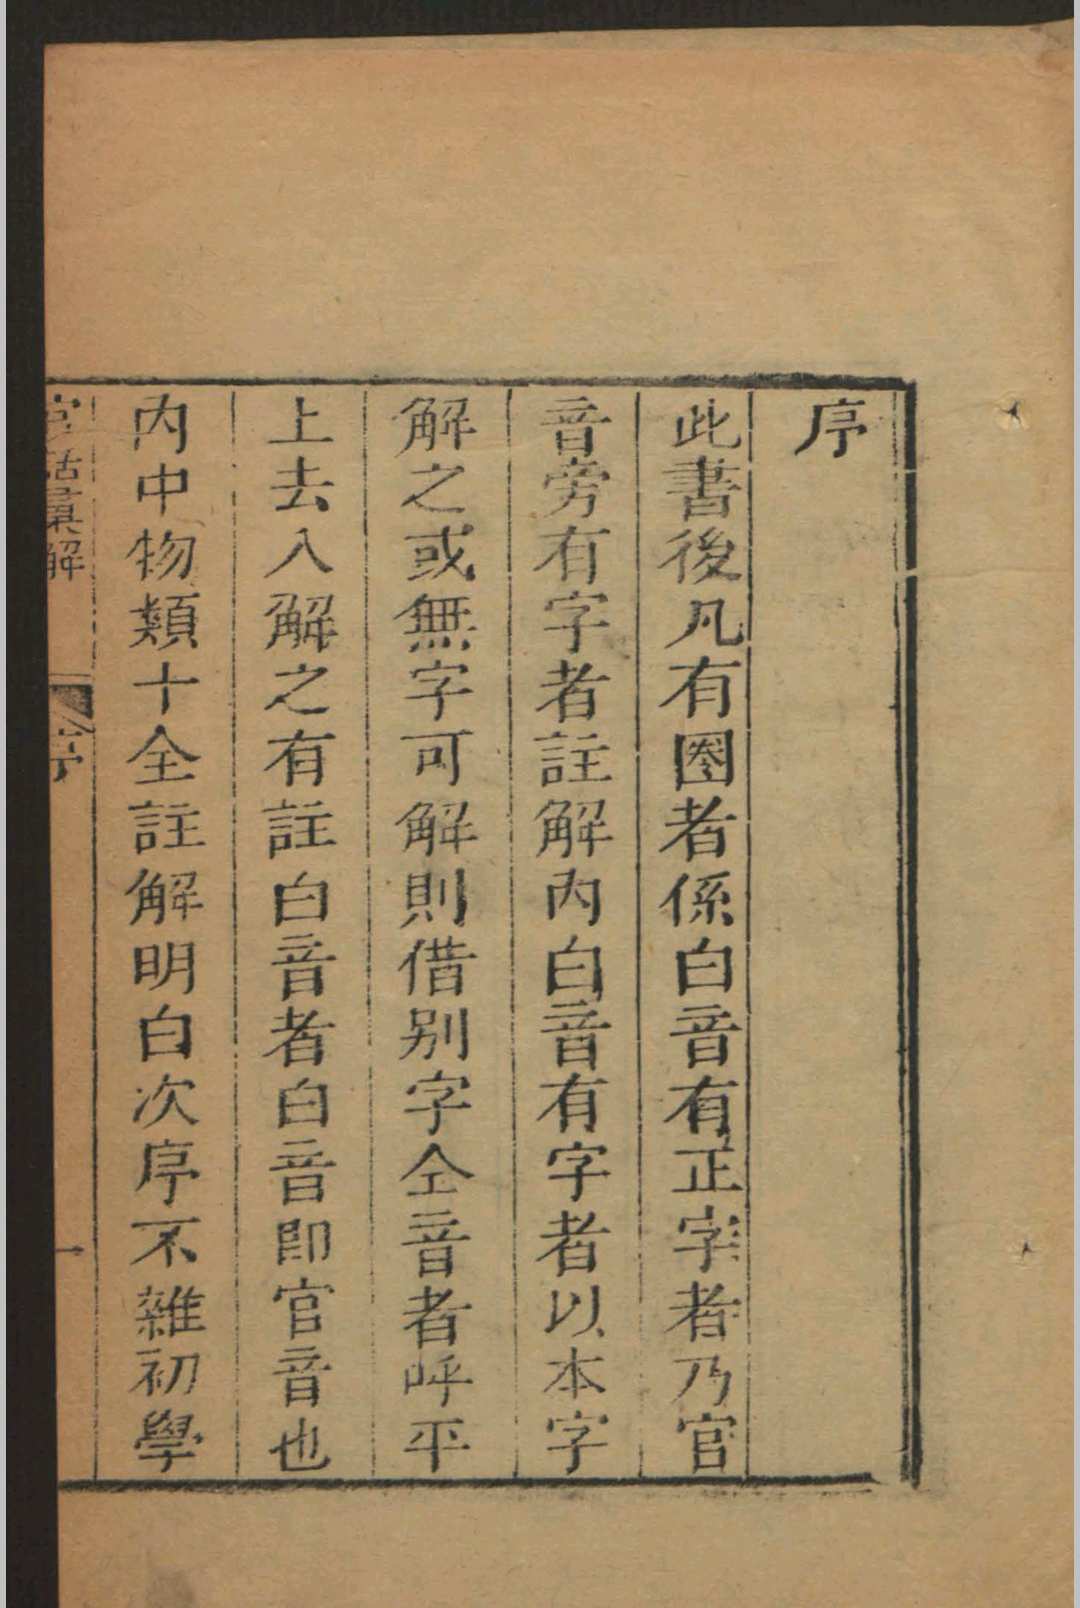 序
此書後凡有圈者係白音有正字者乃官
音旁有字者註解內白音有字者以本字
解之或無字可解則借別字仝音者呼平
上去入解之有註白音者白音即官音也
內中物類十全註解明白次序不雜初學
官話彙解 序 一